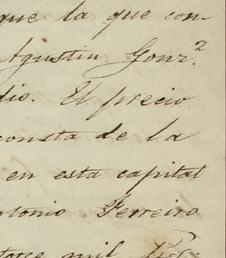 que la que con-
Agustin Gonz.z
dio. El precio
consta de la
en esta capital
Antonio Ferreiro
torce mil